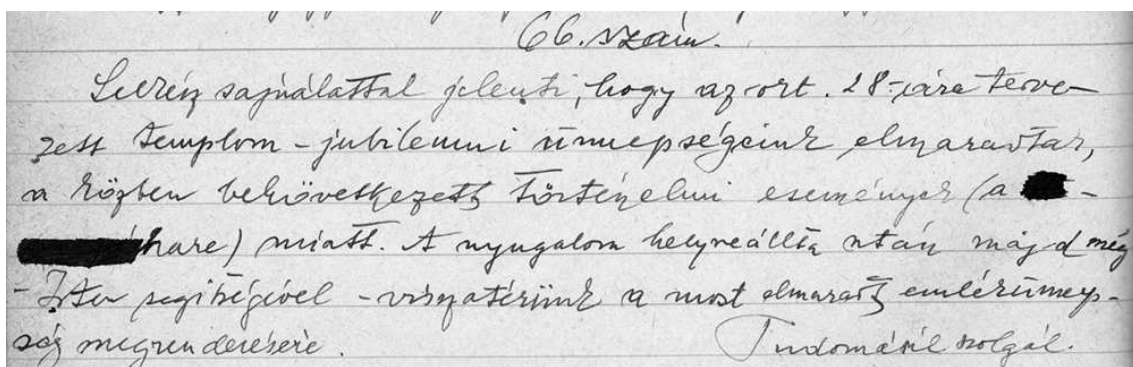 66. szám.
Lelkész sajnálattal jelenti, hogy az okt. 28-ára terve-
zett templom-jubileumi ünnepségeink elmaradtak,
a közben bekövetkezett történelmi események (a
harc) miatt. A nyugalom helyreállta után majd még
- Isten segítségével - visszatérünk a most elmaradt emlékünnep-
ség megrendezésére. Tudomásul szolgál.